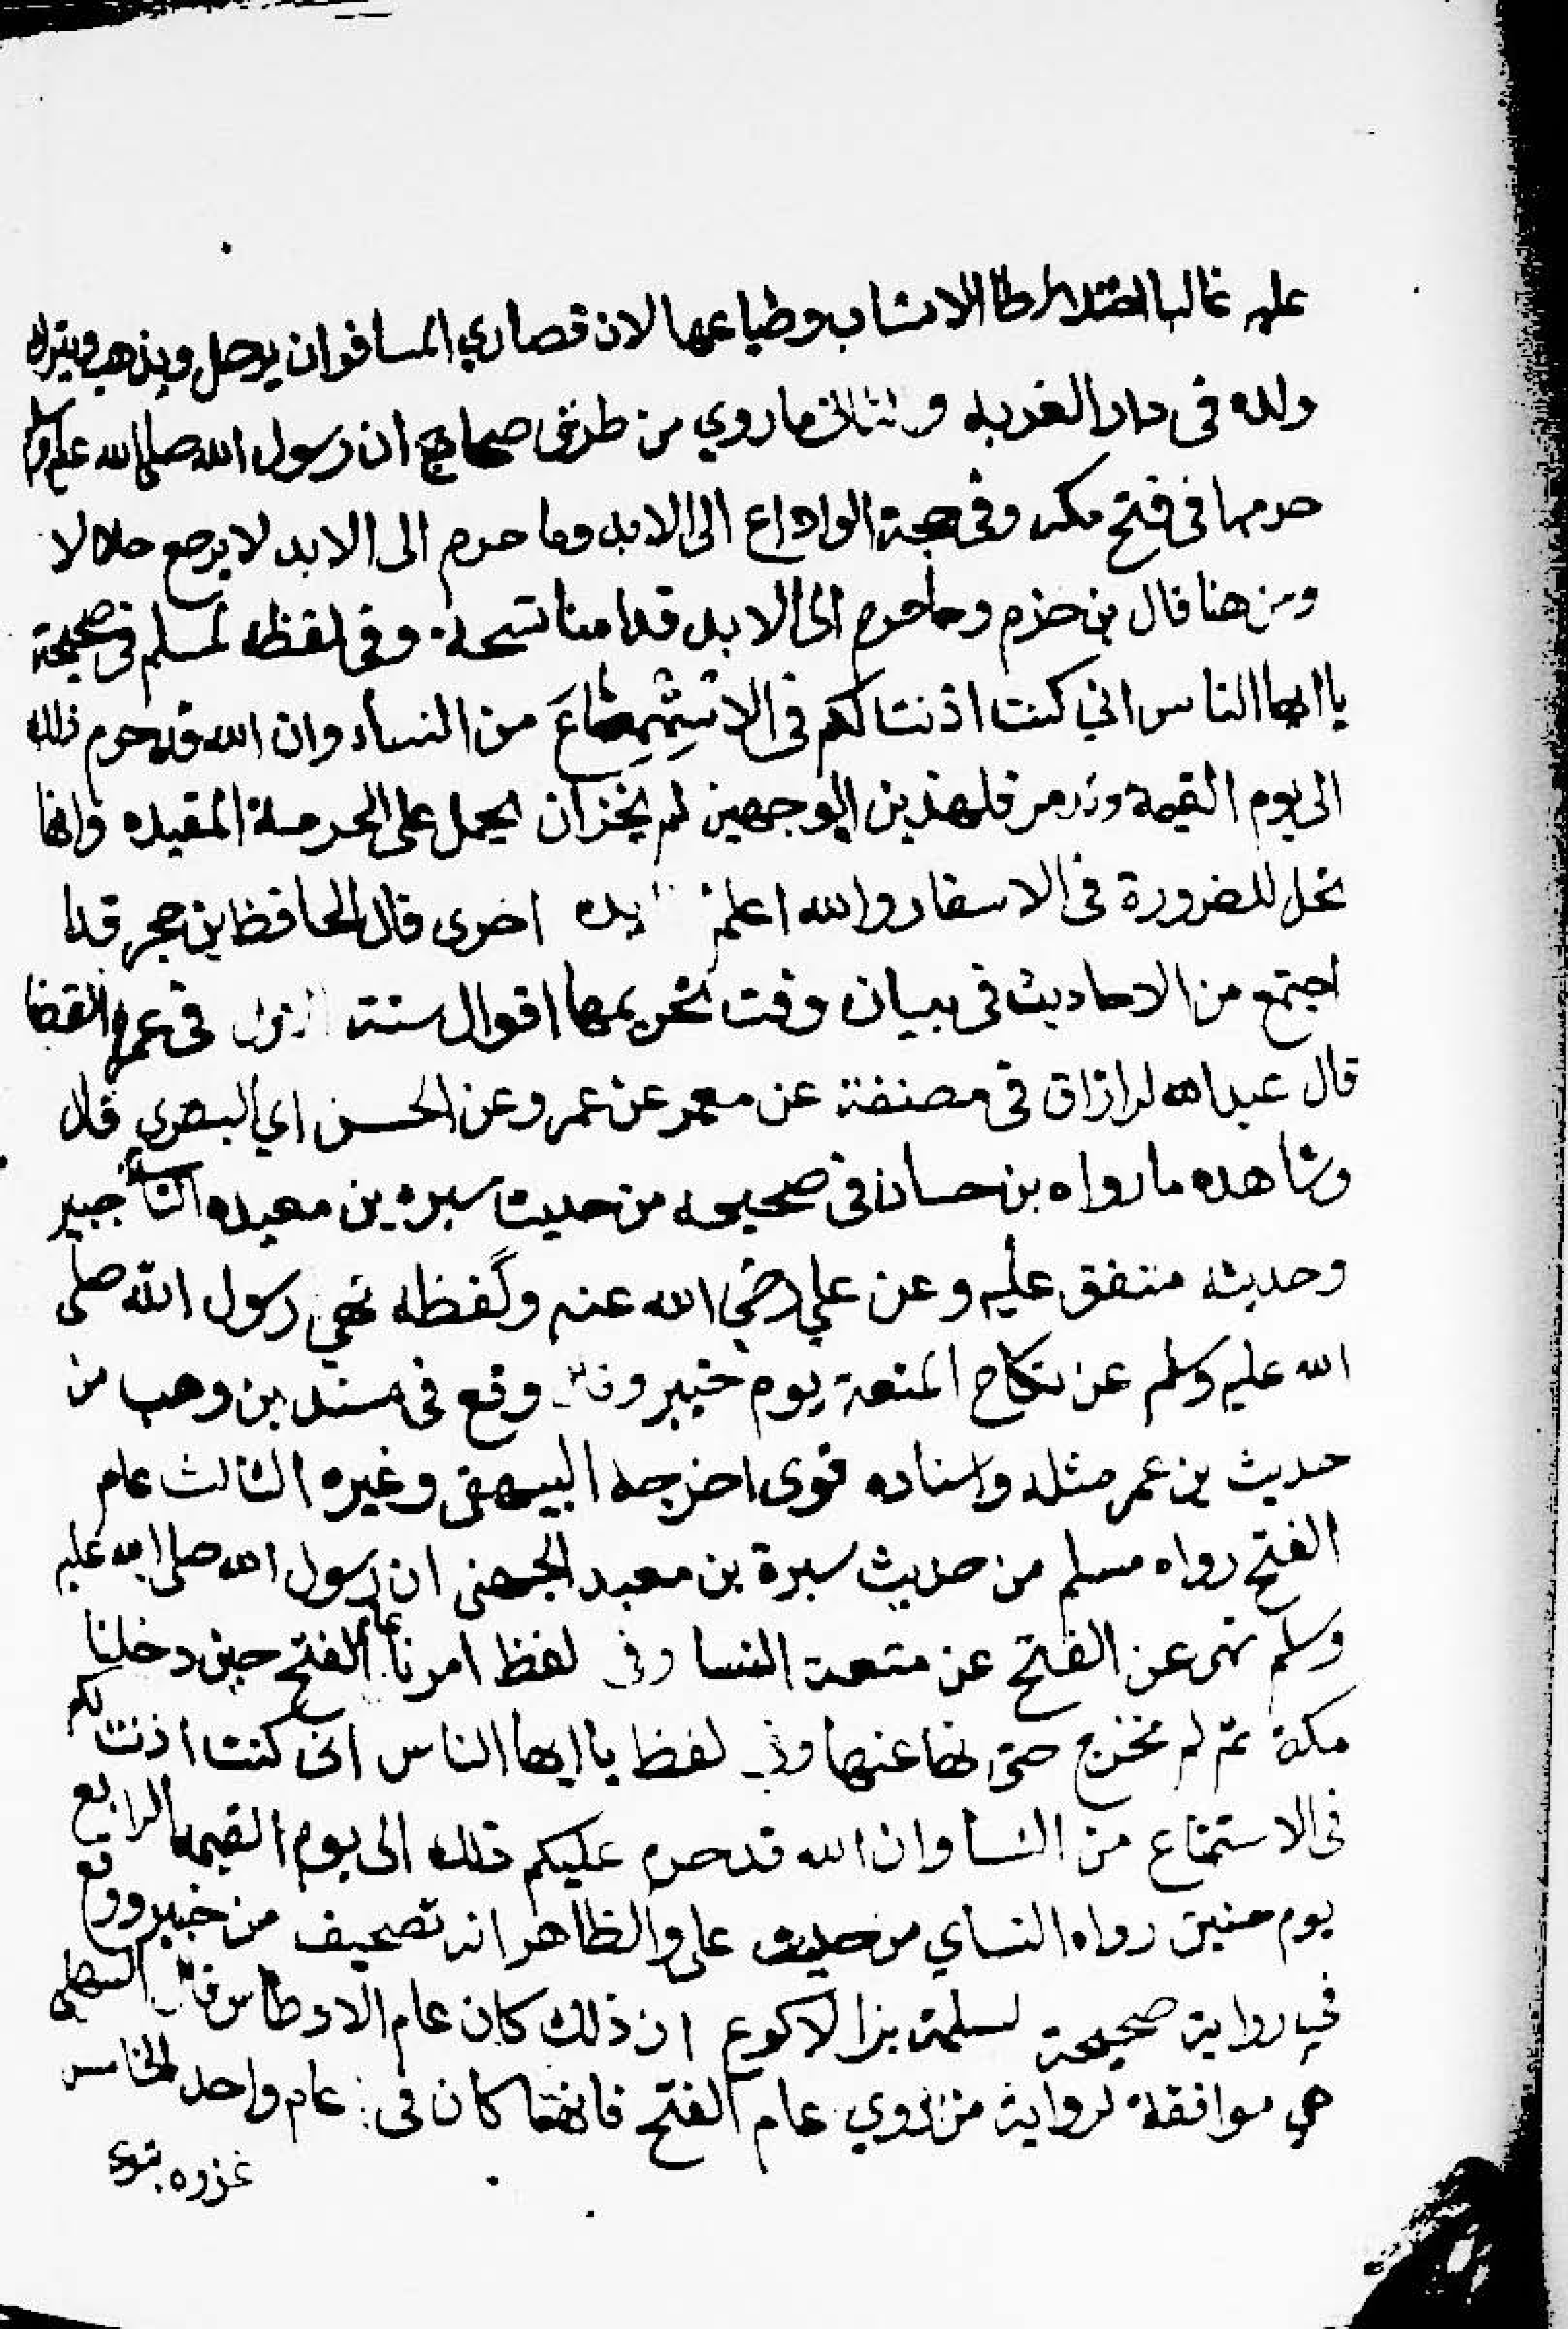 عليه غالبا اختلاط الانساب وطياعها لان قصاري المسافر ان يرحل ويذهب ويترك
ولده فى دار الغربه و ما روي من طرق صحاح ان رسول الله صلى الله عليه وسلم
حرمها فى فتح مكه وفى حجة الوداع الى الابد وما حرم الى الابد لا يرجع حلالا
ومن هنا قال بن حزم وما حرم الى الابد قد امنا نسخه وفى لفظ لمسلم فى صحيحة
يا ايها الناس اني كنت اذنت لكم فى الاستمتاع من النساء وان الله قد حرم ذلك
الى يوم القيمة فلهذين الوجهين لم يجز ان يحمل على الحرمة المقيده وانها
تحل للضرورة فى الاسفار والله اعلم اخرى قال الحافظ بن حجر قد
اجتمع من الاحاديث فى بيان وقت تحريمها اقوال ستة فى عمرة القضا
قال عبد الرزاق فى مصنفة عن معمر عن عمرو عن الحسن اي البصري قال
وشاهده ما رواه بن حسان فى صحيحه من حديث سبره بن معبده الثاني خيبر
وحديثه متفق عليه وعن علي رضي الله عنه ولفظه نهي رسول الله صلى
الله عليه وسلم عن نكاح المتعة يوم خيبر وقد وقع فى مسند بن وهب من
حديث بن عمر مثله واسناده قوى اخرجه البيهقى وغيره الثالث عام
الفتح رواه مسلم من حديث سبرة بن معبد الجهنى ان رسول الله صلى الله عليه
وسلم نهى عن الفتح عن متعة النسا وفى لفظ امرنا عام الفتح حين دخلنا
مكة ثم لم نخرج حتى نهنا عنها وفي لفظ يا ايها الناس انى كنت اذنت لكم
فى الاستمتاع من النسا وان الله قد حرم عليكم ذلك الى يوم القيمه الرابع
يوم حنين رواه النساي من حديث على والظاهر انه تصحيف من خيبر ووقع
في رواية صحيحة لسلمة بن الاكوع ان ذلك كان عام الاوطاس قال السهيلى
هي موافقة لرواية من روي عام الفتح فانهما كان فى عام واحد الخامس
غزوه تبوك